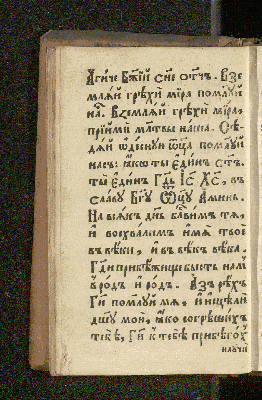 Агнче Бж҃їй Сн҃е Ѻ҆́ч҃ь. Взе
млѧй грѣхи мїра помлꙋ́й
на́с. Вземлѧй грѣхи мїра,
прїими мл҃твы наша. Сѣ-
дѧй ѡ҆деснꙋю ѻ҆ц҃а помлꙋ́й
насъ: ꙗ҆кѡ ты є҆динъ ст҃ъ.
ты є҆динъ Гд҃ь І҆с҃ Хс҃, въ
славꙋ Бг҃ꙋ Ѻ҆ц҃ꙋ Аминь.
На всѧкъ дн҃ь бл҃вимъ тѧ,
и восхвалимъ и҆мѧ твое
въ вѣки, и въ вѣкъ вѣка.
Гд҃и прибѣжище бысть намъ
в родъ и родъ. Азъ рѣхъ
Гд҃и помилꙋй мѧ, и и҆сцѣли
дш҃ꙋ мою, ꙗ҆кѡ согрѣшихъ
тебѣ, Гд҃и к тебѣ прибѣгохъ
наꙋчи